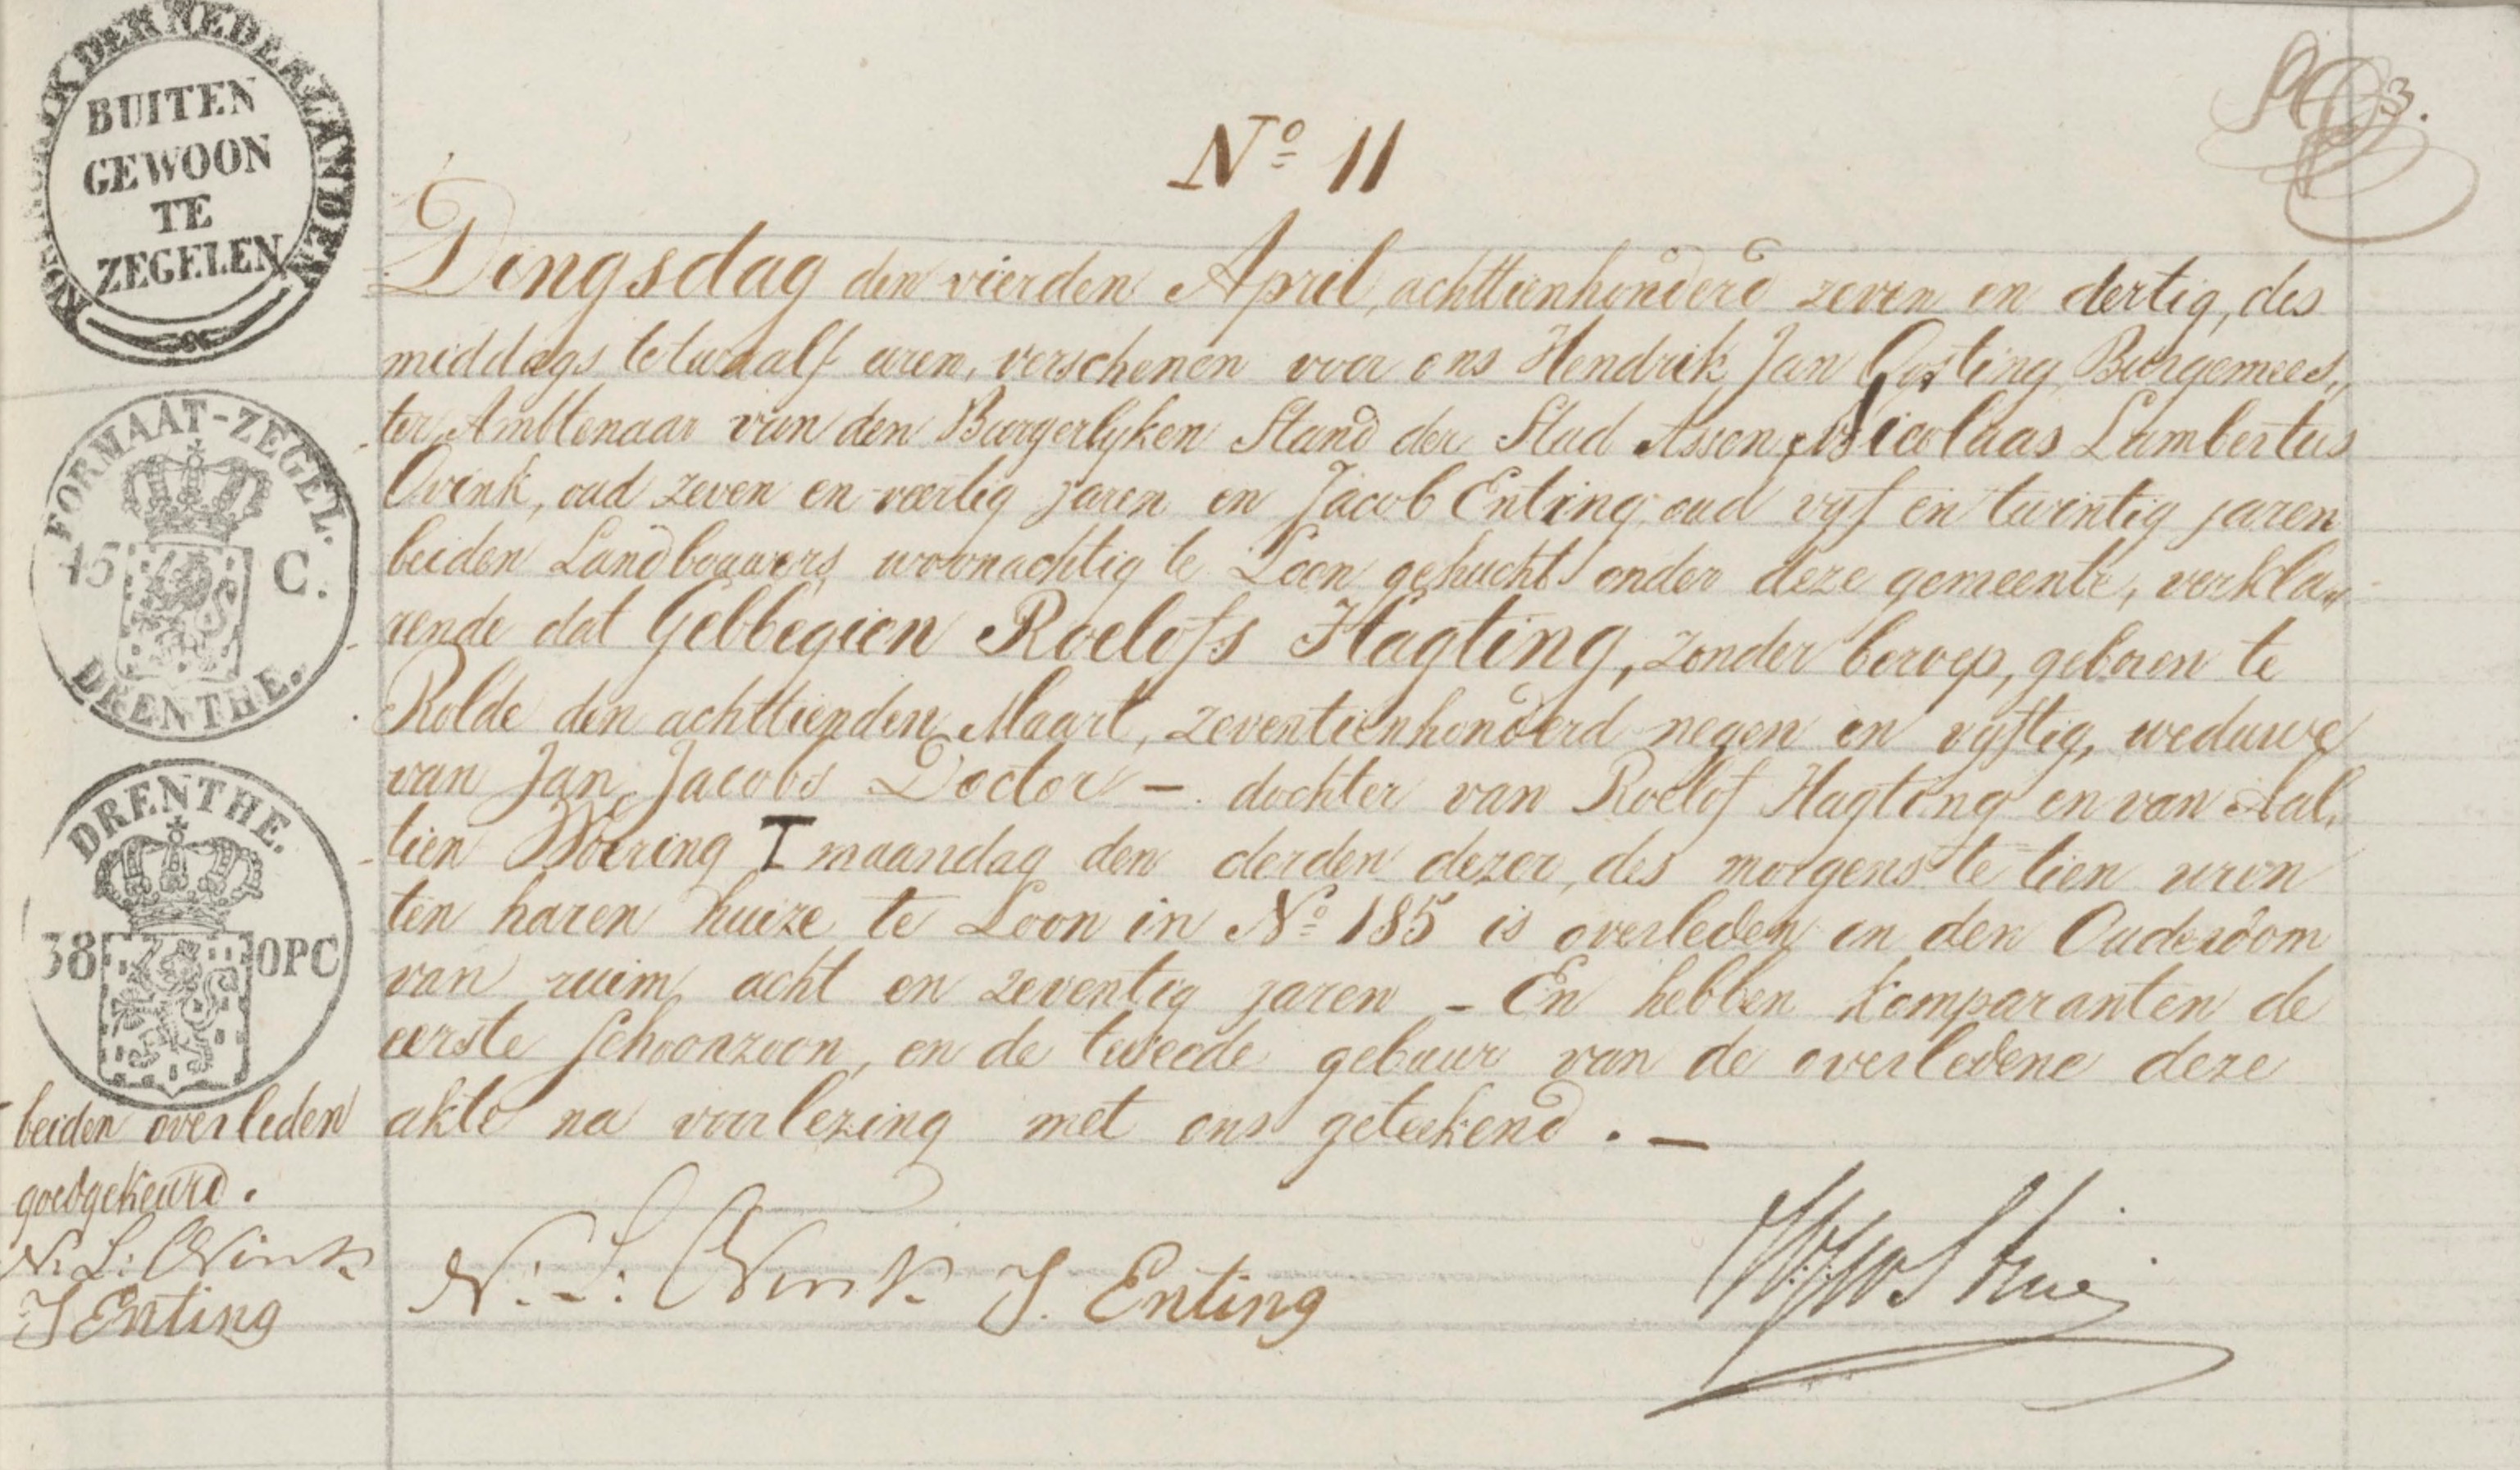 KONINGRIJK DER NEDERLANDEN
BUITEN
GEWOON
TE
ZEGELEN
FORMAAT-ZEGEL.
45 C.
DRENTHE.
DRENTHE.
38 OPC
3.
No 11
Dingsdag den vierden April, achttienhonderd zeven en dertig, des
middags te twaalf uren, verschenen voor ons Hendrik Jan Oosting Burgemees„
ter Ambtenaar van den Burgerlyken Stand der Stad Assen, Nicolaas Lambertus
Ovink, oud zeven en veertig jaren en Jacob Enting oud vyf en twintig jaren
beiden Landbouwers woonachtig te Loon gehucht onder deze gemeente, verkla„
rende dat Gebbegien Roelofs Hagting, zonder beroep, geboren te
Rolde den achttienden Maart, zeventienhonderd negen en vyftig, weduwe
van Jan Jacobs Doctor – dochter van Roelof Hagting en van Aal„
tien Woering T maandag den derden dezer, des morgens te tien uren
ten haren huize te Loon in No 185 is overleden in den Ouderdom
van ruim acht en zeventig jaren – En hebben komparanten de
eerste schoonzoon, en de tweede gebuur van de overledene deze
akte na voorlezing met ons geteekend. —
beiden overleden
goedgekeurd.
N. L: Ovink
J Enting
N. L: Ovink J. Enting
HJOosting